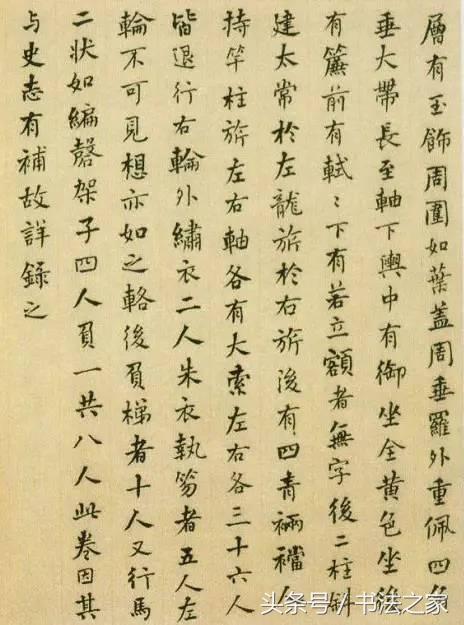 層有玉飾周圍如葉蓋周垂羅外重佩四角
垂大帶長至軸下輿中有御坐全黃色坐後
有簾前有軾〻下有若立額者無字後二柱斜
建太常於左龍旂於右旂後有四青裲襠人
持竿柱旂左右軸各有大索左右各三十六人
皆退行右輪外繡衣二人朱衣執笏者五人左
輪不可見想亦如之輅後負梯者十人又行馬
二狀如編磬架子四人負一共八人此卷因其
与史志有補故詳錄之
头条号/书法之家